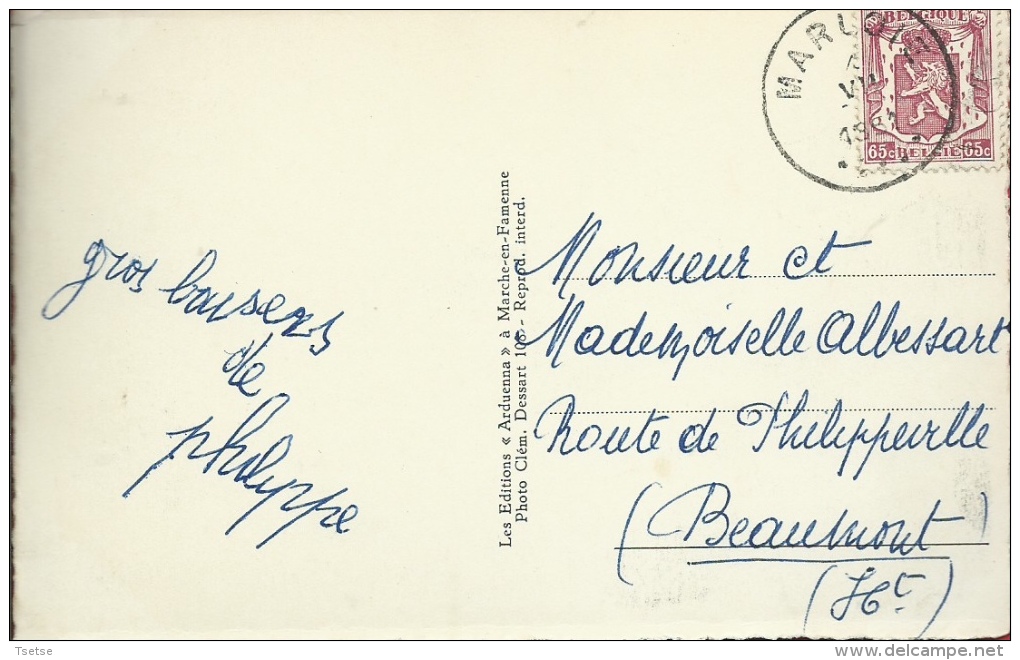 BELGIQUE
65c BELGIE 65c
gros baisers
de
philippe
Les Editions « Arduenna » à Marche-en-Famenne
Photo Clém. Dessart - Reprod. interd.
Monsieur et
Mademoiselle Albessart
Route de Philippeville
(Beaumont)
(Ht)
Tsetse
delcampe.net